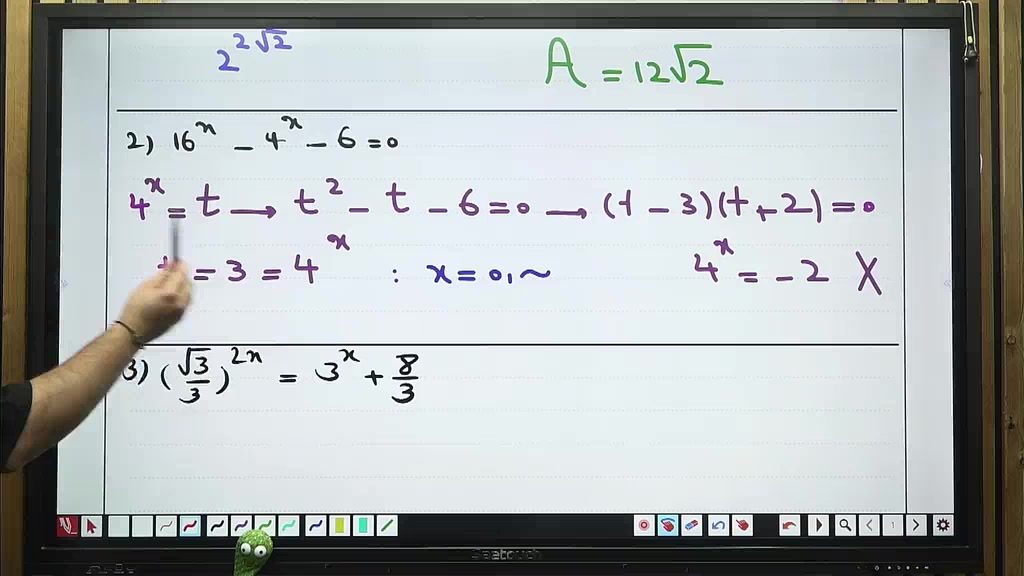 2^{2√2}
A = 12√2
2) 16^x - 4^x - 6 = 0
4^x = t → t^2 - t - 6 = 0 → (t - 3)(t + 2) = 0
= 3 = 4^x : x = 0,~ 4^x = -2 X
3) (√3/3)^{2x} = 3^x + 8/3